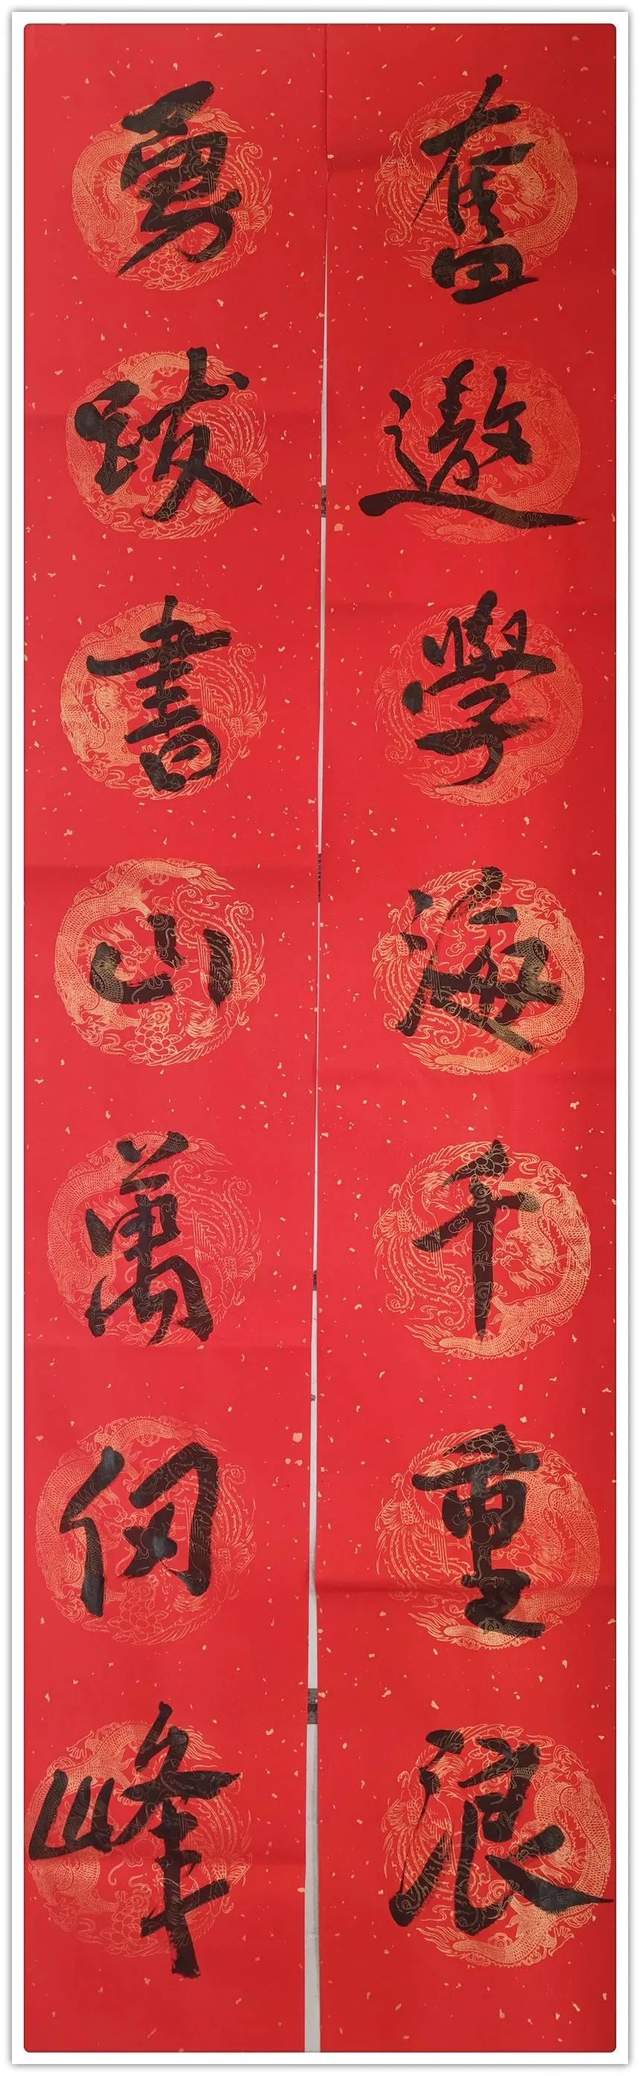 奮遨學海千重浪
勇跋書山萬仞峰